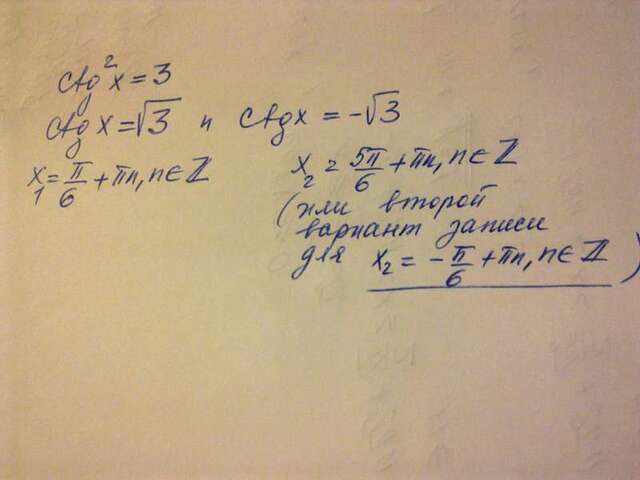 ctg²x = 3
ctg x = √3 и ctgx = -√3
x₁ = π/6 + πn, n∈ℤ x₂ = 5π/6 + πn, n∈ℤ
(или второй
вариант записи
для x₂ = -π/6 + πn, n∈ℤ)